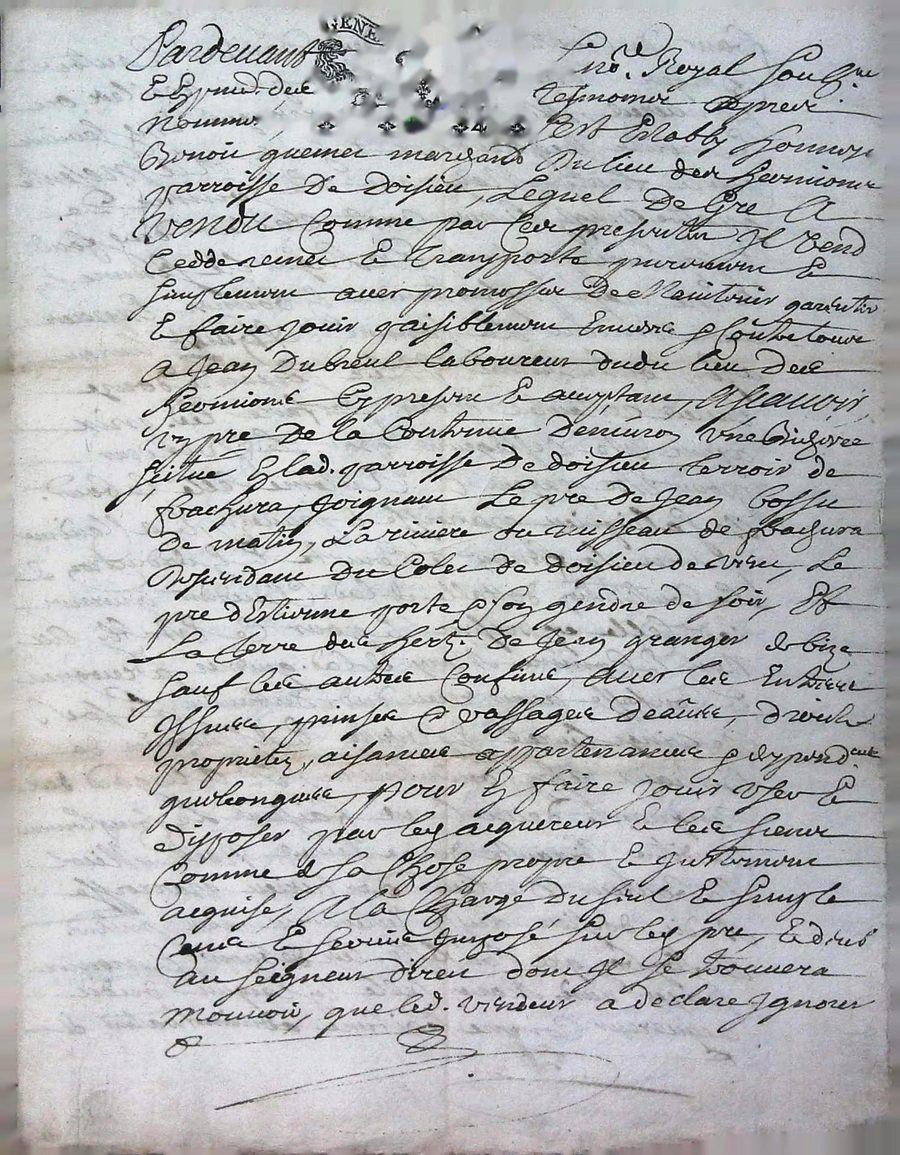 GENE
Pardevant le no.re Royal soub.ne
Et en pnce des tesmoins apres
nommes, fust Estably honnor.
Benoit marchand du lieu des hermions
parroisse De doisieu, Lequel De Gre A
vendu Comme par Ces presentes Il vend
Cedde remet Et Transporte purement Et
simplement avec promesse De Maintenir garentir
Et faire jouir paisiblement Envers & Contre tous
A Jean Dubreul laboureur dudit lieu des
hermions Cy present Et acceptant, Ascauoir
vn pré De la Contenue Denuiron vne Bicheree
scitué En lad. parroisse De doisieu terroir de
frachura, Joignant Le pre de Jean bossu
de matin, La riuiere ou ruisseau de frachura
dessendant Du Colet de doisieu de vent, Le
pre d'Estienne porte & son gendre de soir, Et
La terre des hert. De Jean granger de bize
sauf les autres Confins, auec les Entrees
Issues, prinses & passages deaues, droits
proprietez, aisances appartenances & deppend.ces
quelconques, pour En faire jouir vser Et
disposer par led. acquereur Et les siens
Comme de sa Chose propre Et justement
acquise, A la Charge Du seul Et simple
Cens Et seruis Imposé sur led. pre, Et deub
au seigneur direct dont Il se trouuera
mouuoir, que led. vendeur a declare Ignorer
&